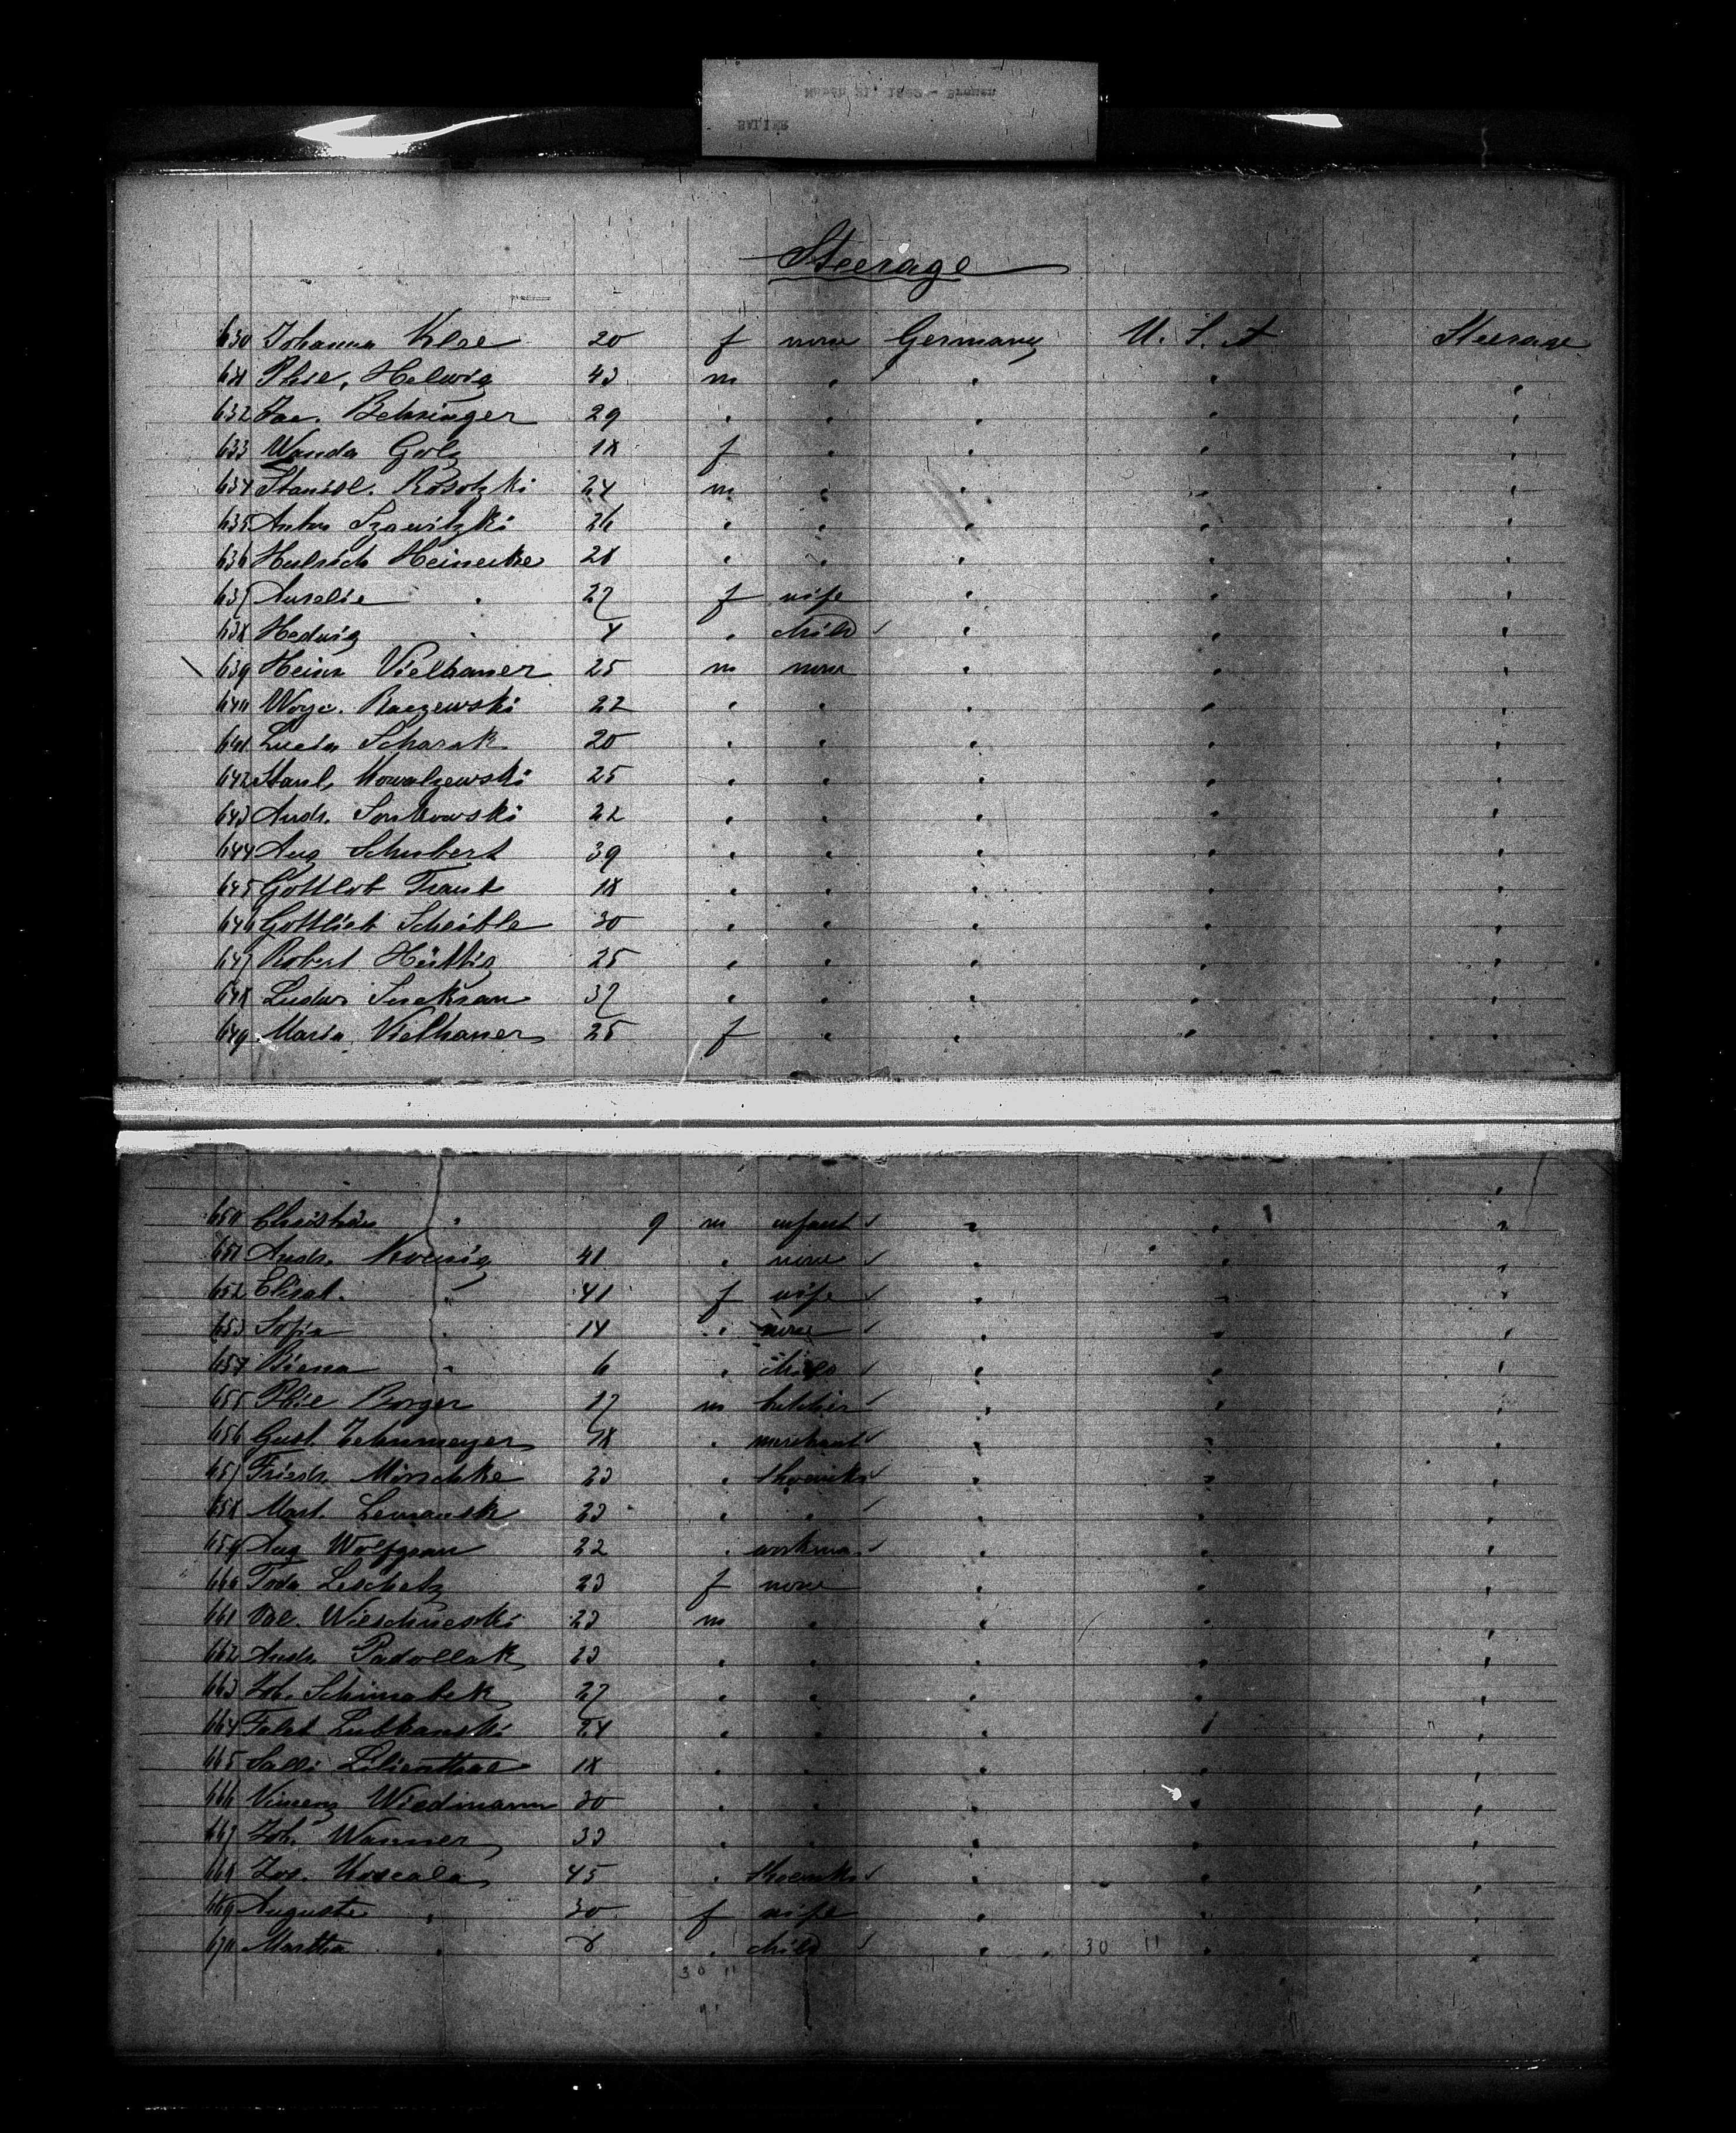 March 21, 1882 - Bremen
Steerage
630 Johanna Klee 20 f none Germany U. S. A Steerage
631 Phil. Helwig 43 m " " " "
632 Jac. Behringer 29 " " " " "
633 Wanda Golz 18 f " " " "
634 Stanisl. Rosotzki 24 m " " " "
635 Anton Szawitzki 26 " " " " "
636 Heinrich Heinecke 28 " " " " "
637 Aurelie " 27 f wife " " "
638 Hedwig " 4 " child " " "
639 Heinr Vielhauer 25 m none " " "
640 Woyc. Raczewski 22 " " " " "
641 Lucia Scharak 20 " " " " "
642 Stanl. Kowalzewski 25 " " " " "
643 Andr. Sonkowski 22 " " " " "
644 Aug Schubert 39 " " " " "
645 Gottlob Traub 18 " " " " "
646 Gottlieb Scheible 30 " " " " "
647 Robert Hüttig 25 " " " " "
648 Ludw. Suckrau 37 " " " " "
649 Maria Vielhauer 25 f " " " "
650 Christian " 9 m infant " " "
651 Andr. Koenig 41 " none " " "
652 Elisab. " 41 f wife " " "
653 Sofia " 14 " none " " "
654 " 6 " child " " "
655 Phil Borger 17 m " " "
656 Gust. Zehnmeyer 18 " merchant " " "
657 Friedr. Mirschke 23 " shoemkr " " "
658 Mart. Lemansk 23 " " " " "
659 Aug Wolfgram 22 " workma. " " "
660 Toda Leschetz 23 f none " " "
661 Val. Wieschneski 23 m " " " "
662 Andr. Padollak 23 " " " " "
663 Joh. Schimabek 27 " " " " "
664 Lubkanski 24 " " " " "
665 Salli Lilienthal 18 " " " " "
666 Vincenz Wiedmann 30 " " " " "
667 Joh. Wanner 33 " " " " "
668 Jos. Koscala 45 " shoemkr " " "
669 Auguste " 30 f wife " " "
670 Martha " 8 " child " " "
30 11
30 11